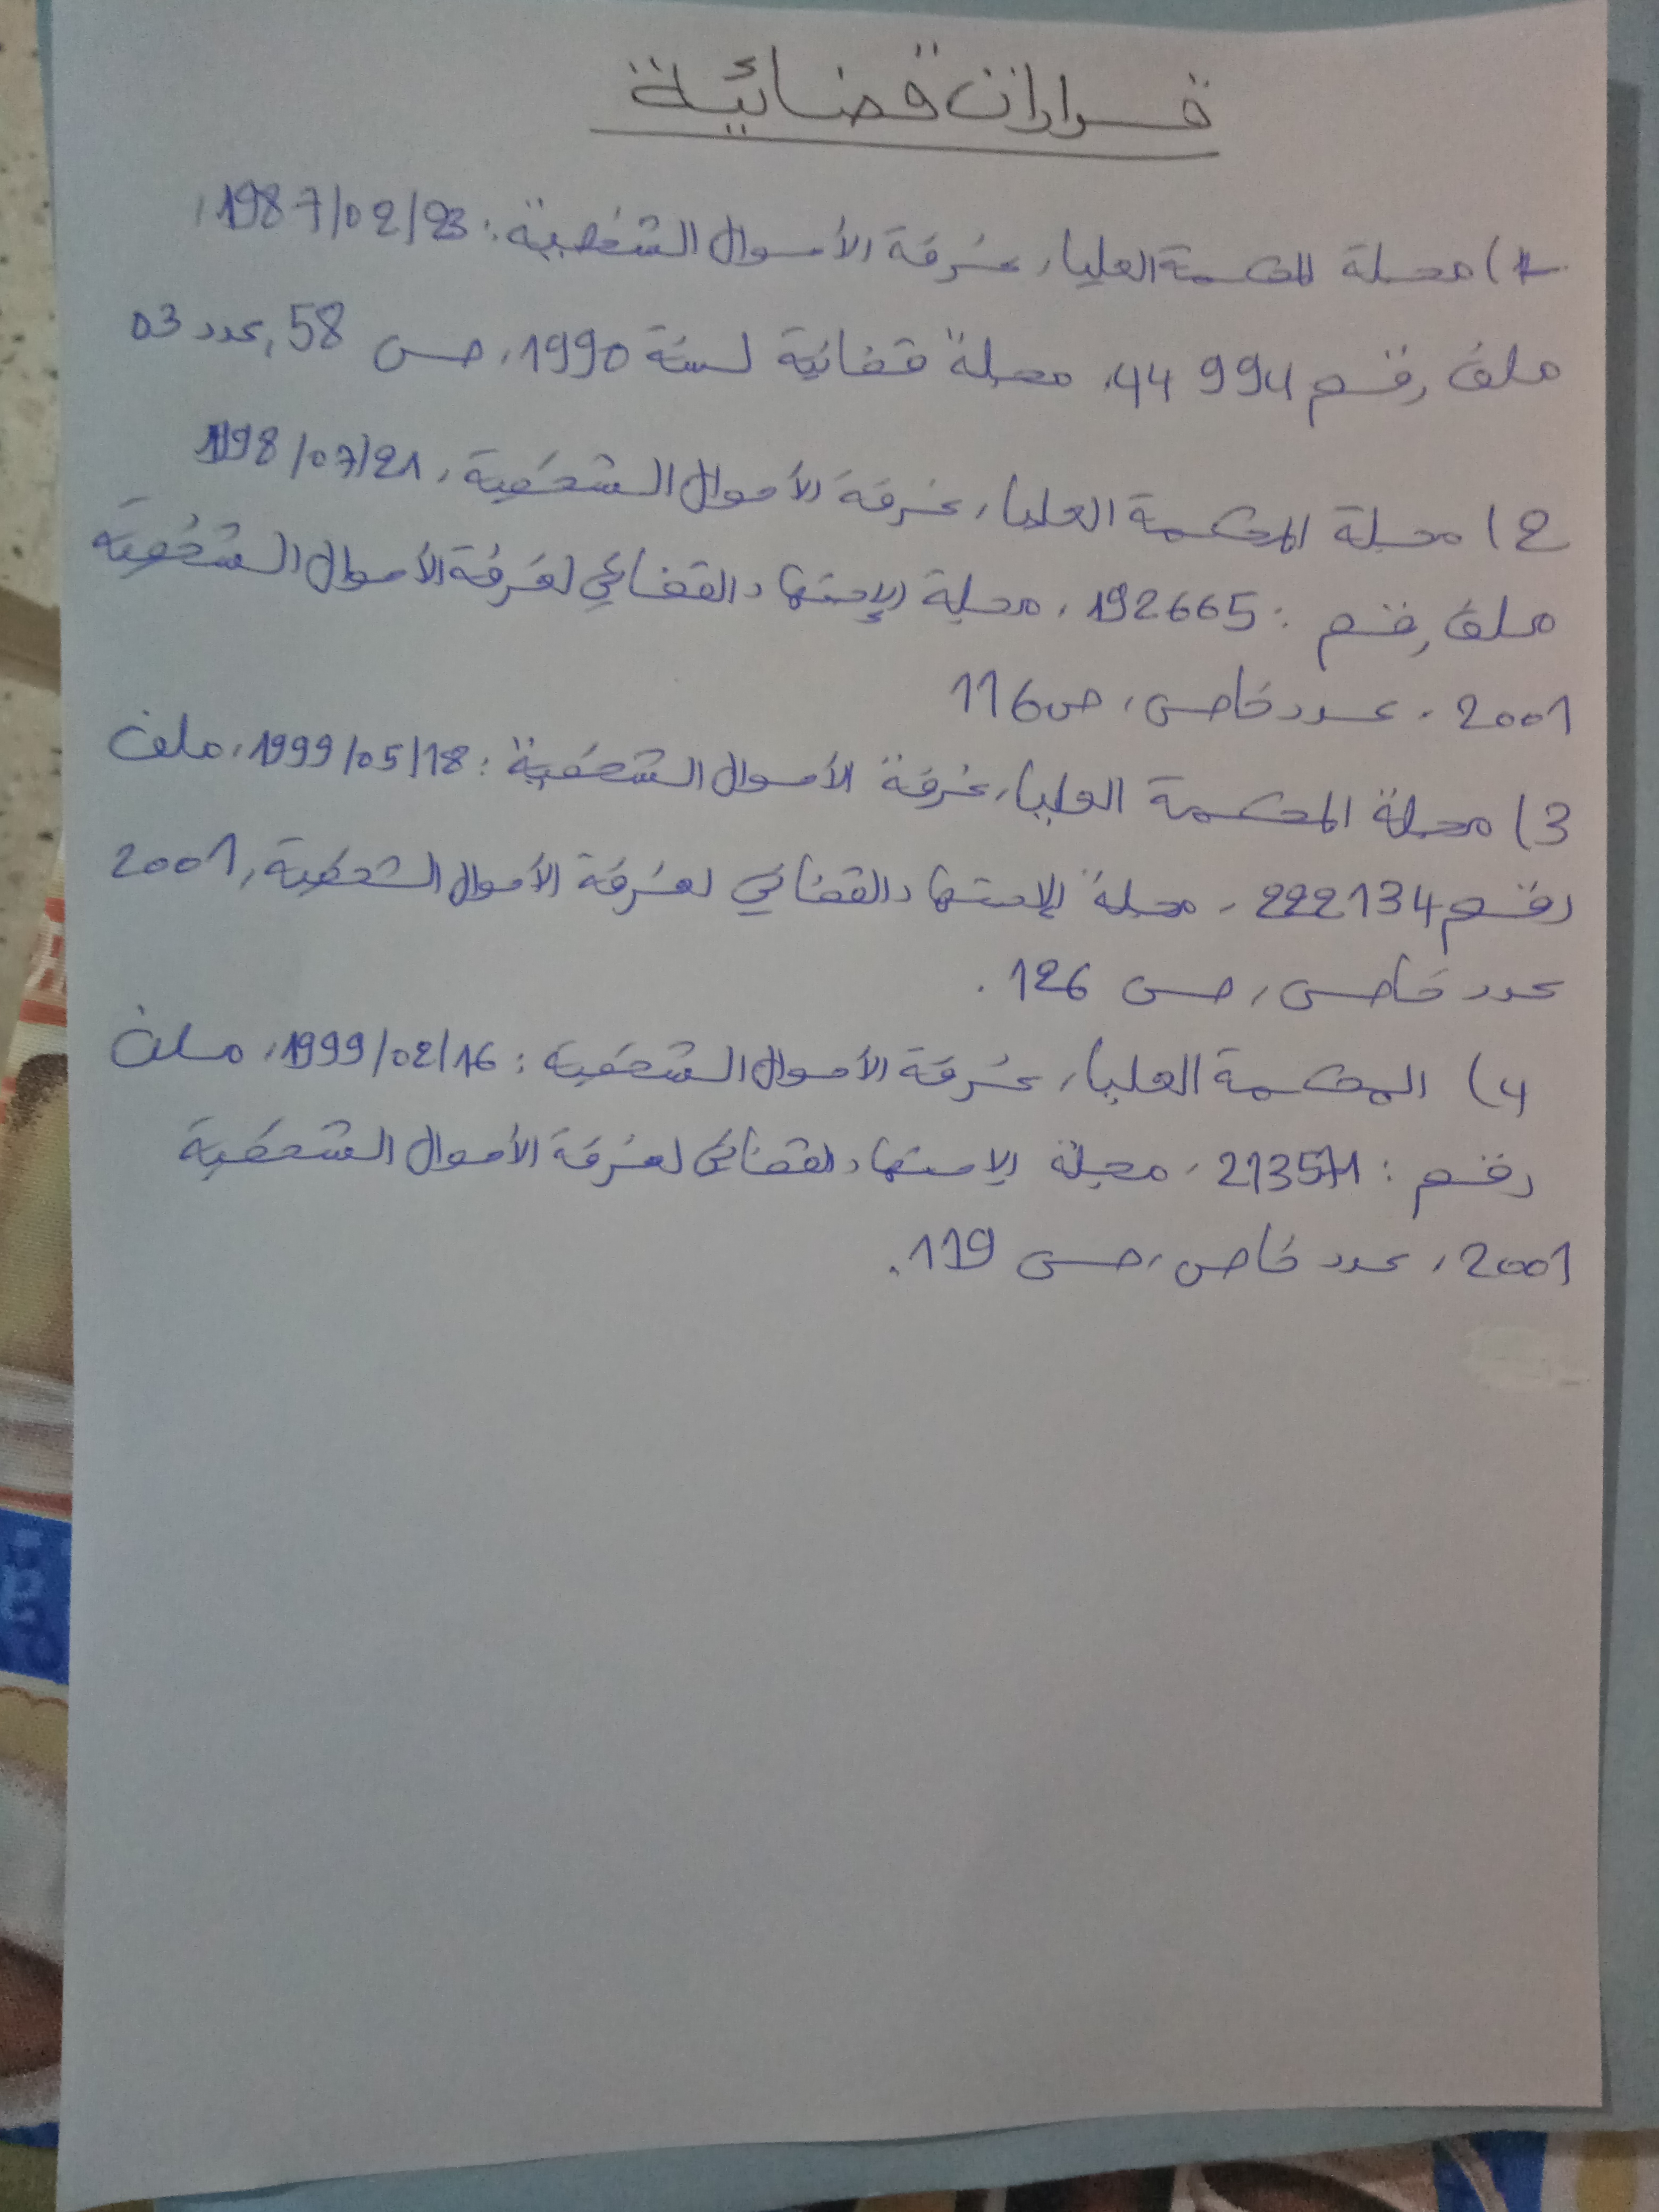 قرارات قضائية
1) مجلة المحكمة العليا، غرفة الأحوال الشخصية: 1987/02/23،
ملف رقم 44 994، مجلة قضائية لسنة 1990، ص 58، عدد 03
2) مجلة المحكمة العليا، غرفة الأحوال الشخصية، 1998/07/21
ملف رقم : 192665، مجلة الإجتهاد القضائي لغرفة الأحوال الشخصية
2001، عدد خاص، ص 116
3) مجلة المحكمة العليا، غرفة الأحوال الشخصية : 1999/05/18، ملف
رقم 222134، مجلة الإجتهاد القضائي لغرفة الأحوال الشخصية، 2001
عدد خاص، ص 126.
4) المحكمة العليا، غرفة الأحوال الشخصية : 1999/02/16، ملف
رقم : 213571، مجلة الإجتهاد القضائي لغرفة الأحوال الشخصية
2001، عدد خاص، ص 119.